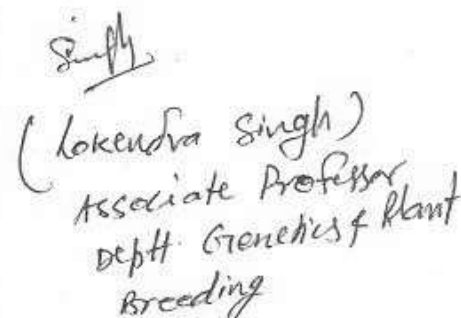 Singh
(Lokendra Singh)
Associate Professor
Deptt. Genetics & Plant
Breeding